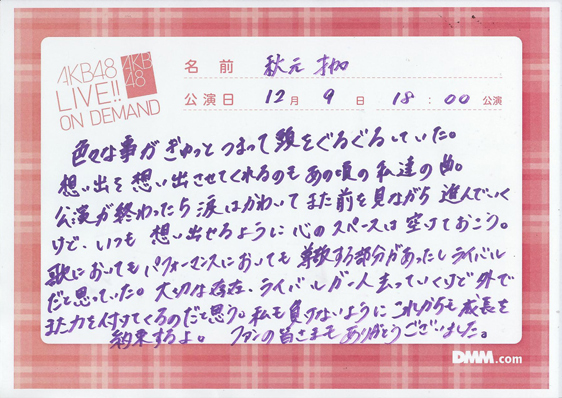 AKB48
LIVE!!
ON DEMAND
AKB
48
名前 秋元 才加
公演日 12月 9日 18:00 公演
色々な事がぎゅっとつまって頭をぐるぐるしていた。
想い出を想い出させてくれるのもあの頃の私達の曲。
公演が終わったら涙はかわいてまた前を見ながら進んでいく
けど、いつも想い出せるように心のスペースは空けておこう。
歌においてもパフォーマンスにおいても尊敬する部分があったしライバル
だと思っていた。大切な存在、ライバルが一人去っていくけど外で
また力を付けてくるのだと思う。私も負けないようにこれからも成長を
約束するよ。 ファンの皆さまもありがとうございました。
DMM.com